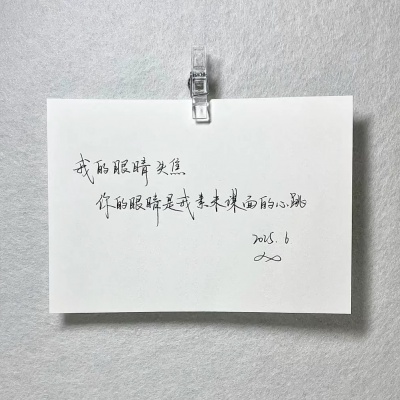 我的眼睛失焦
你的眼睛是我素未谋面的心跳
2025.6